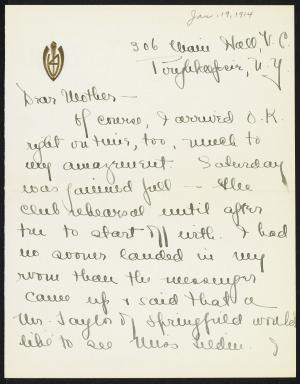 Jan. 19, 1914
306 Main Hall, V. C.
Poughkeepsie, N. Y.
Dear Mother —
Of course, I arrived O. K.
right on time, too, much to
my amazement. Saturday
was jammed full — Glee
club rehearsal until after
ten to start off with. I had
no sooner landed in my
room than the messenger
came up & said that a
Mr. Taylor of Springfield would
like to see Miss